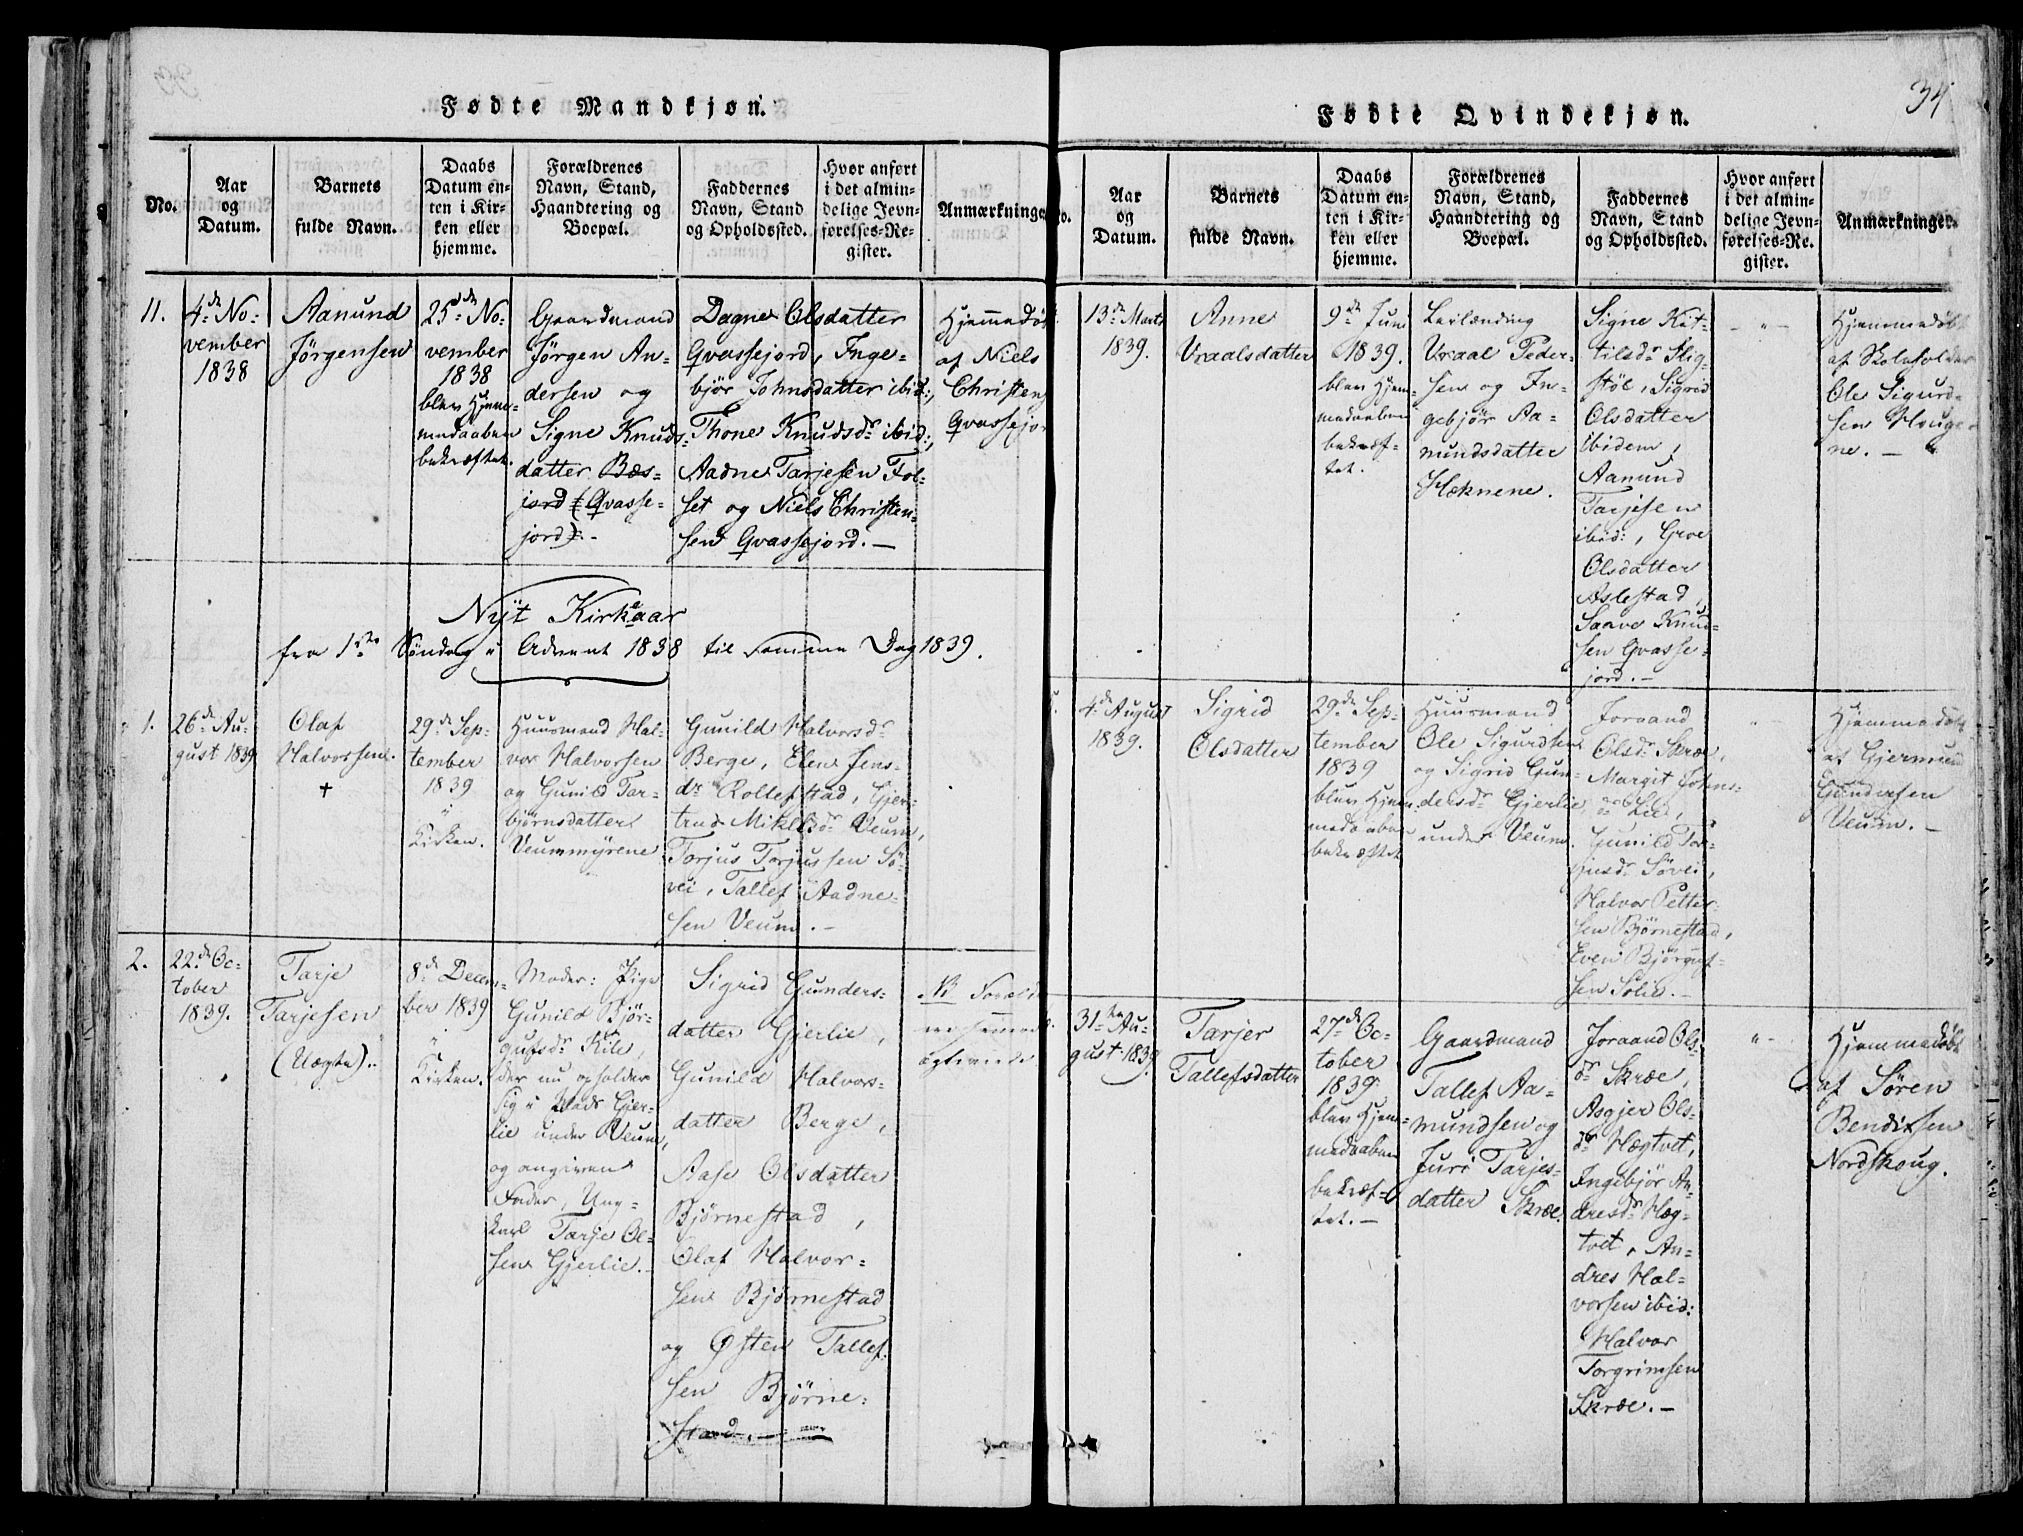 Fødte Mandkjøn.
No.
Aar
og
Datum.
Barnets
fulde Navn.
Daabs
Datum en-
ten i Kir-
ken eller
hjemme.
Forældrenes
Navn, Stand,
Haandtering og
Boepæl.
Faddernes
Navn, Stand
og Opholdssted.
Hvor anført
i det almin-
delige Jevn-
førelses-Re-
gister.
Anmærkninger
11.
4de No-
vember
1838
Aanund
Jörgensen
25de No-
vember
1838
blev Hjem-
medaaben
bekræftet.
Gaardmand
Jörgen An-
dersen og
Signe Knuds-
datter Bæs-
jord (Qvasse-
jord).-
Dagne Olsdatter
Qvassejord, Inge-
björ Johnsdatter ibid:,
Thone Knudsdr ibid:,
Aadne Tarjesen Fol-
set og Niels Christen-
sen Qvassejord.-
Hjemmedöbt
af Niels
Christens
Qvassejor
Nyt Kirkeaar
fra 1ste Söndag i Advent 1838 til samme Dag 1839.
1.
26de Au-
gust 1839
Olaf
Halvorsen.
+
29de Sep-
tember
1839
i
Kirken.
Huusmand Hal-
vor Halvorsen
og Gunild Tar-
björnsdatter
Veummyrene
Gunild Halvorsdr
Berge, Elen Jens-
dr Rollefstad, Gjer-
trud Mikelsdr Veum,
Torjus Torjussen Sö-
vei, Tallef Aadne-
sen Veum.-
2.
22de Oc-
tober
1839.
Tarje
Tarjesen
(Uægte).
8de Decem-
ber 1839
i
Kirken.
Moder: Pige
Gunild Bjør-
gufsdr Kile,
der nu opholder
sig i Plads Gjer-
lie under Veum,
og angiven
Fader, Ung-
karl Tarje Ol-
sen Gjerlie.
Sigrid Gunders-
datter Gjerlie,
Gunild Halvors-
datter Berge,
Aase Olsdatter
Björnestad,
Olaf Halvor-
sen Björnestad
og Østen Tallef-
sen Björne-
stad.-
Fødte Qvindekjøn.
34
No.
Aar
og
Datum.
Barnets
fulde Navn.
Daabs
Datum en-
ten i Kir-
ken eller
hjemme.
Forældrenes
Navn, Stand,
Haandtering og
Boepæl.
Faddernes
Navn, Stand
og Opholdssted.
Hvor anført
i det almin-
delige Jevn-
førelses-Re-
gister.
Anmærkninger.
13de Marts
1839.
Anne
Vraalsdatter
9de Juni
1839.
blev Hjem-
medaaben
bekræf-
tet.
Leilænding
Vraal Peder-
sen og In-
gebjör Aa-
nundsdatter
Hæknene.
Signe Ket-
tilsdr Slig-
stöl, Sigrid
Olsdatter
ibidem,
Aanund
Tarjesen
ibid:, Groe
Olsdatter
Aslestad,
Saave Knud-
sen Qvasse-
jord.-
Hjemmedöbt
af Skoleholder
Ole Sigurd-
sen Houge-
ne.-
4de August
1839.
Sigrid
Olsdatter
29de Sep-
tember
1839
blev Hjem-
medaaben
bekræftet
Huusmand
Ole Sigurdsen
og Sigrid Gun-
dersdr Gjerlie
under Veum.
Joraand
Olsdr Skræe,
Margit Johns-
dr Lie,
Gunild Tor-
jusdr Sövei,
Halvor Petter-
sen Björnestad,
Even Björguf-
sen Solie.-
Hjemmedöbt
af Gjermund
Gundersen
Veum.-
31te Au-
gust 1839
Tarjer
Tallefsdatter
27de Oc-
tober
1839.
blev Hjem-
medaaben
bekræf-
tet.-
Gaardmand
Tallef Aa-
mundsen og
Juri Tarjes-
datter Skræe.
Joraand Ols-
dr Skræe,
Asgjer Ols-
dr Hægtvet,
Ingebjör An-
dresdr Hæg-
tvet, An-
dres Hal-
vorsen ibid:
Halvor
Torgrimsen
Skræe.-
Hjemmedöbt
af Sören
Bendixsen
Nordskoug.